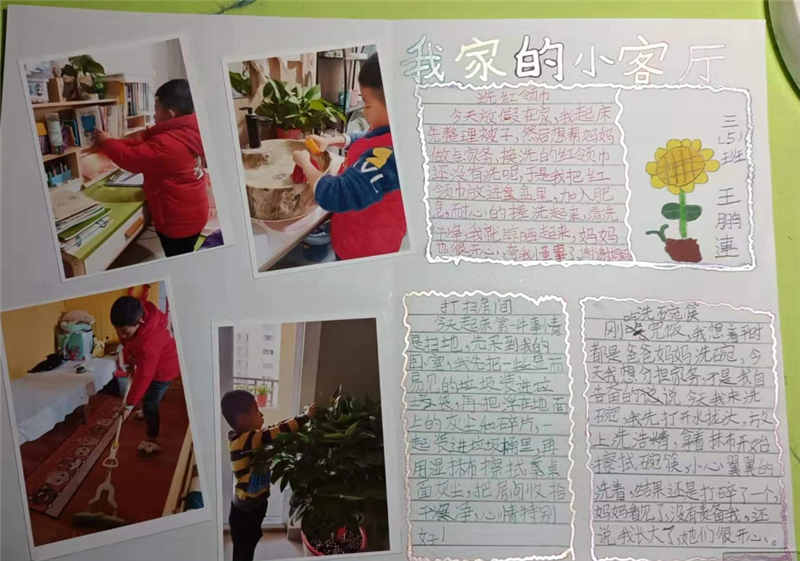 我家的小客厅
洗红领巾
今天放假在家,我起床
先整理被子,然后想帮妈妈
做点家务,换洗的红领巾
还没有洗呢,于是我把红
领巾放进盆里,加入肥
皂,耐心的搓洗起来,清洗
干净,我就晾晒起来,妈妈
也很开心,夸我懂事了,谢谢妈妈
三(5)班
王鹏
打扫房间
今天起床第一件事情
是扫地,先来到我的
卧室,我先把一些显而
易见的垃圾装进垃
圾袋,再把浮在地面
上的灰土和碎片,一
起装进垃圾桶里,再
用湿抹布擦拭桌
面灰尘,把房间收拾
干净,心情特别
好!
洗碗筷
刚吃完饭,我想着平时
都是爸爸妈妈洗碗,今
天我想分担家务,于是我自
告奋勇的说今天我来洗
碗,我先打开水龙头,放
上洗洁精,拿着抹布开始
擦拭碗筷,小心翼翼的
洗着,结果还是打碎了一个,
妈妈看见了没有责备我,还
说我长大了,她们很开心。